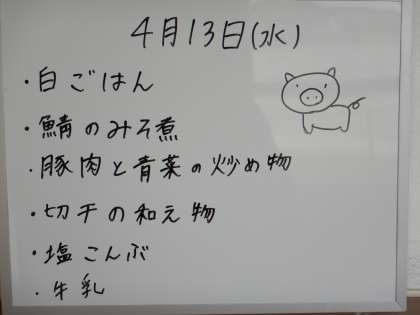 4月13日(水)
・白ごはん
・鯖のみそ煮
・豚肉と青菜の炒め物
・切干の和え物
・塩こんぶ
・牛乳